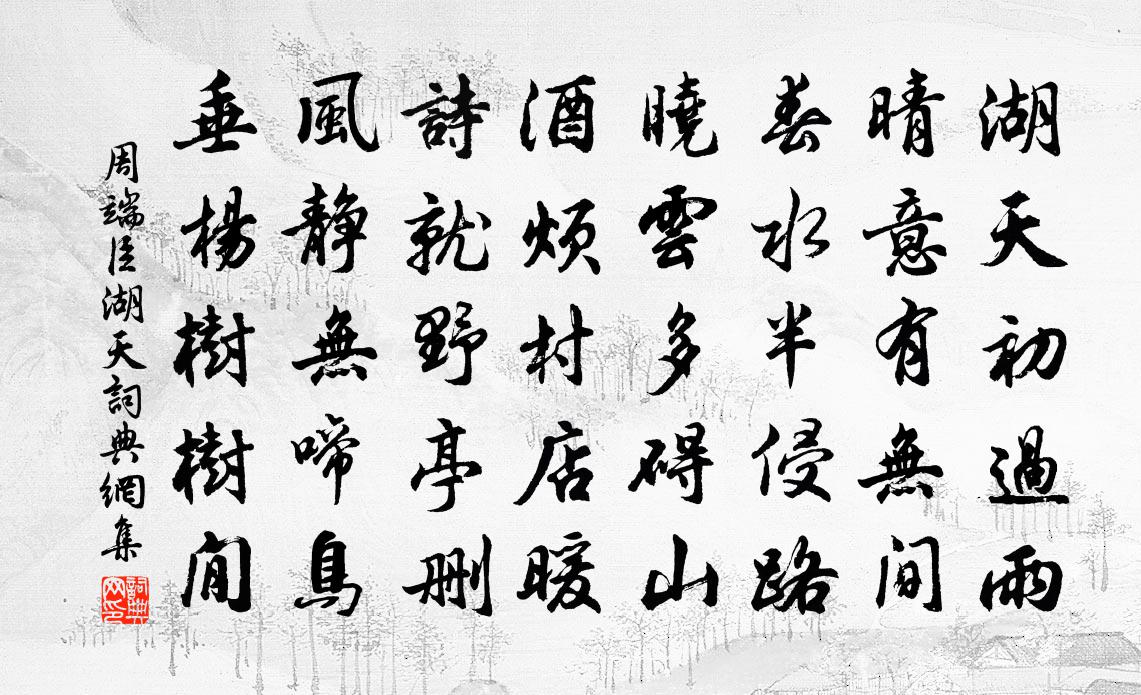 湖天初過雨
晴意有無間
春水半侵路
曉雲多碍山
酒煩村店暖
詩就野亭刪
風静無啼鳥
垂楊樹樹閒
周端臣湖天詞典網集
詞典
网印